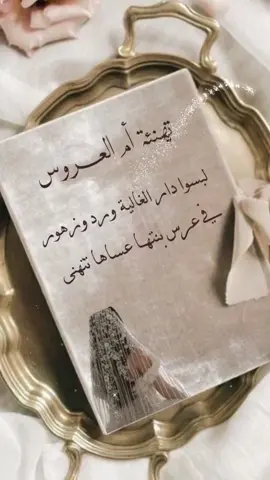 تهنئة أم العروس
لبسوا دار الغالية ورد وزهور
في عرس بنتها عساها تتهنى